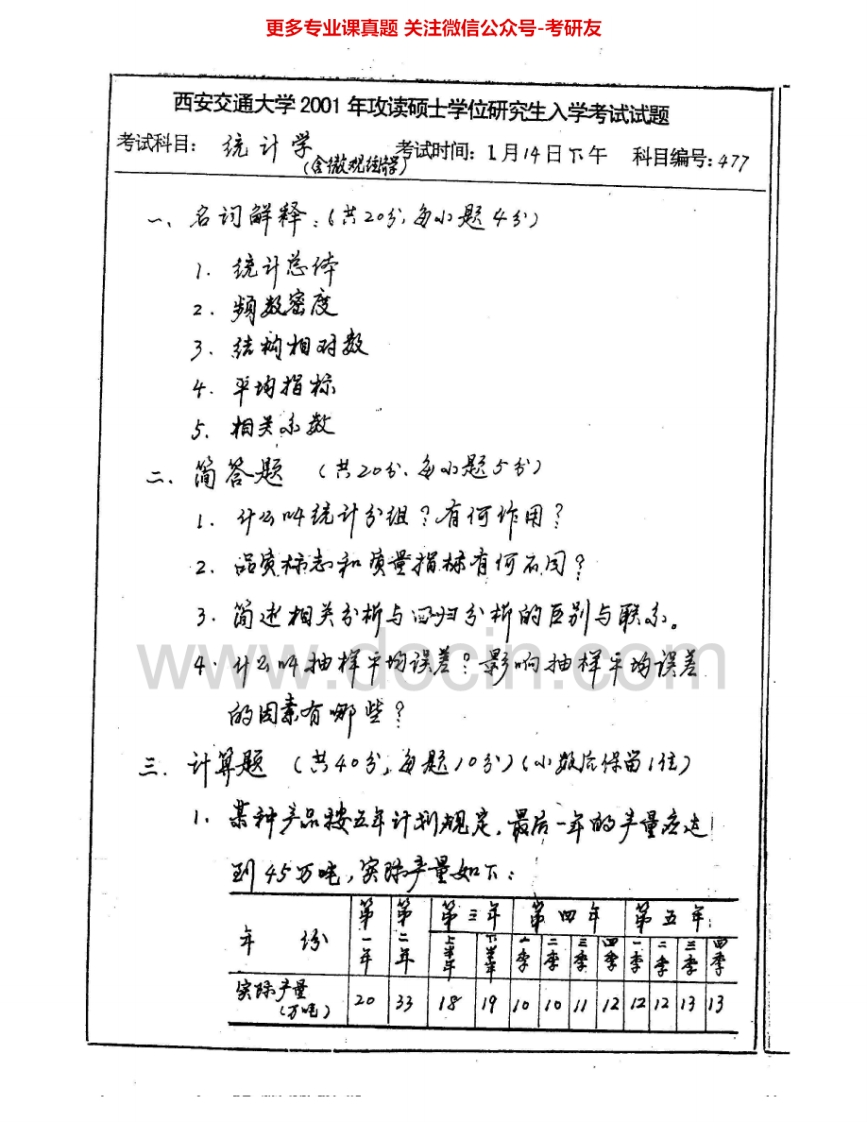 更多专业课真题 关注微信公众号-考研友
西安交通大学2001年攻读硕士学位研究生入学考试试题
考试科目: 统计学 考试时间: 1月14日下午 科目编号: 477
(含微观经济学)
一、名词解释:(共20分,每小题4分)
1. 统计总体
2. 频数密度
3. 结构相对数
4. 平均指标
5. 相关系数
二、简答题 (共20分、每小题5分)
1. 什么叫统计分组?有何作用?
2. 品质标志和质量指标有何不同?
3. 简述相关分析与回归分析的区别与联系。
www.docin.com
4. 什么叫抽样平均误差?影响抽样平均误差
的因素有哪些?
三、计算题 (共40分,每题10分)(小数后保留1位)
1. 某种产品按五年计划规定,最后一年的产量应达
到45万吨,实际产量如下:
年份 第一年 第二年 第三年 第四年 第五年
上半年 下半年 一季 二季 三季 四季 一季 二季 三季 四季
实际产量(万吨) 20 33 18 19 10 10 11 12 12 12 13 13